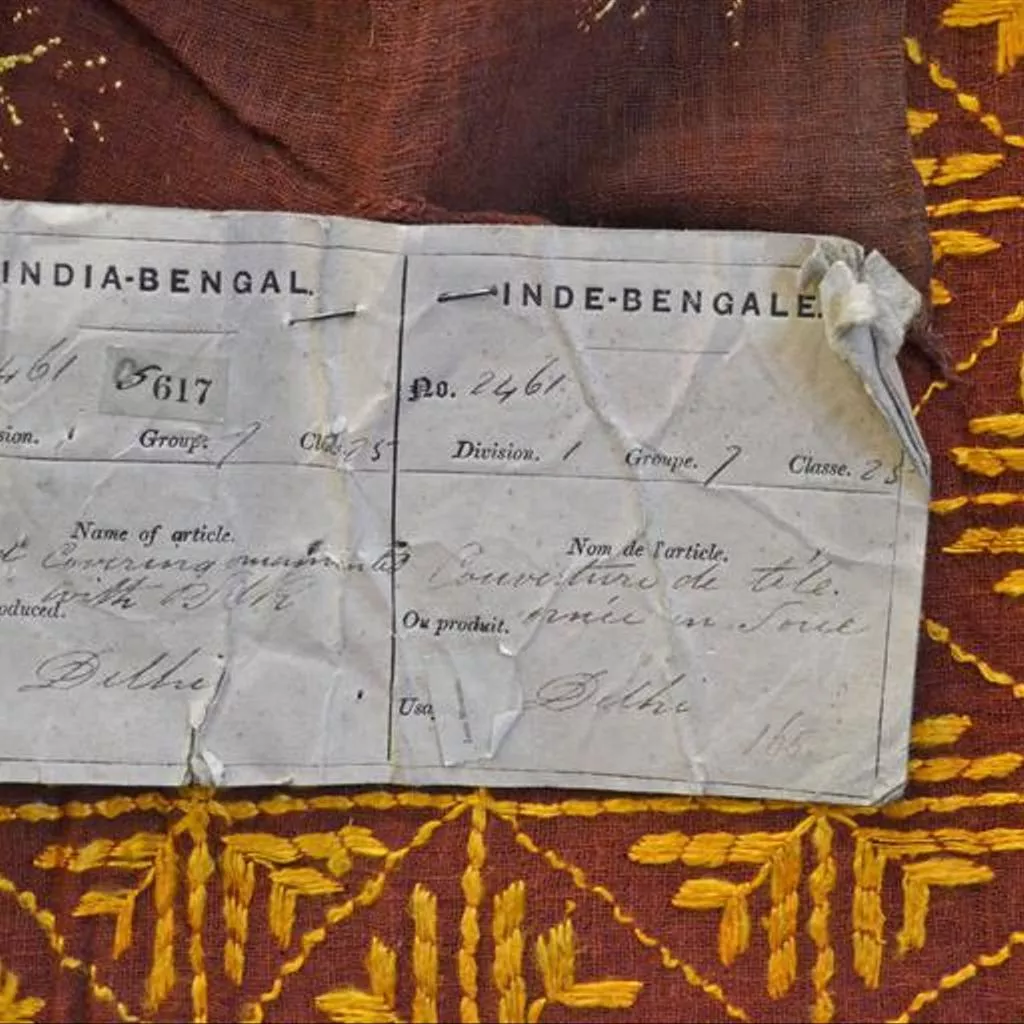 INDIA-BENGAL.
461
617
sion. 1 Group. 7 Class. 25
Name of article.
Covering ornamented
with Silk
oduced.
Delhi
INDE-BENGALE.
No. 2461.
Division. 1 Groupe. 7 Classe. 25
Nom de l'article.
Couverture de téte.
Ou produit. ornée en Soie
Delhi
Usa
165